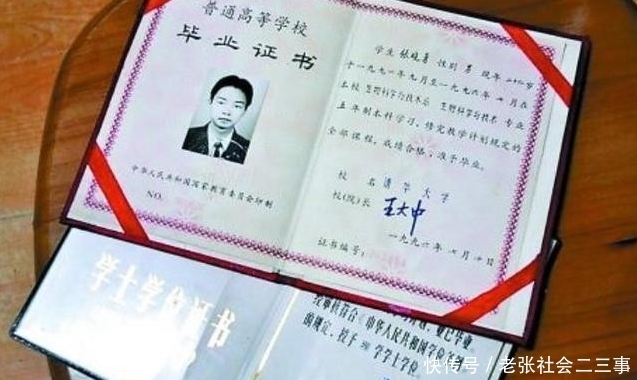 普通高等学校
毕业证书
中华人民共和国国家教育委员会印制
NO.
学生 张晓勇 性别 男 现年 二十二 岁
于一九九一年九月至一九九六年七月在
本校 生物科学与技术系 生物科学与技术 专业
五年制本科学习，修完教学计划规定的
全部课程，成绩合格，准予毕业。
校 名 清华大学
校(院)长 王大中
证书编号：
一九九六年七月 日
学士学位证书
《中华人民共和国学位
的规定，授予 理 学学士学位
快传号 / 老张社会二三事